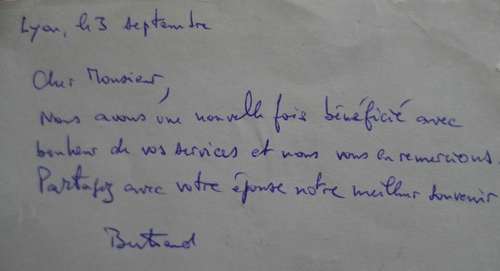 Lyon, le 3 septembre
Cher Monsieur,
Nous avons une nouvelle fois bénéficié avec
bonheur de vos services et nous vous en remercions.
Partagez avec votre épouse notre meilleur souvenir
Bertrand